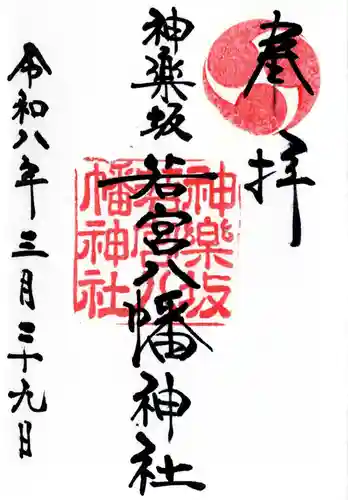 奉拝
神楽坂
若宮八幡神社
神楽坂若宮八幡神社
令和八年三月二十九日